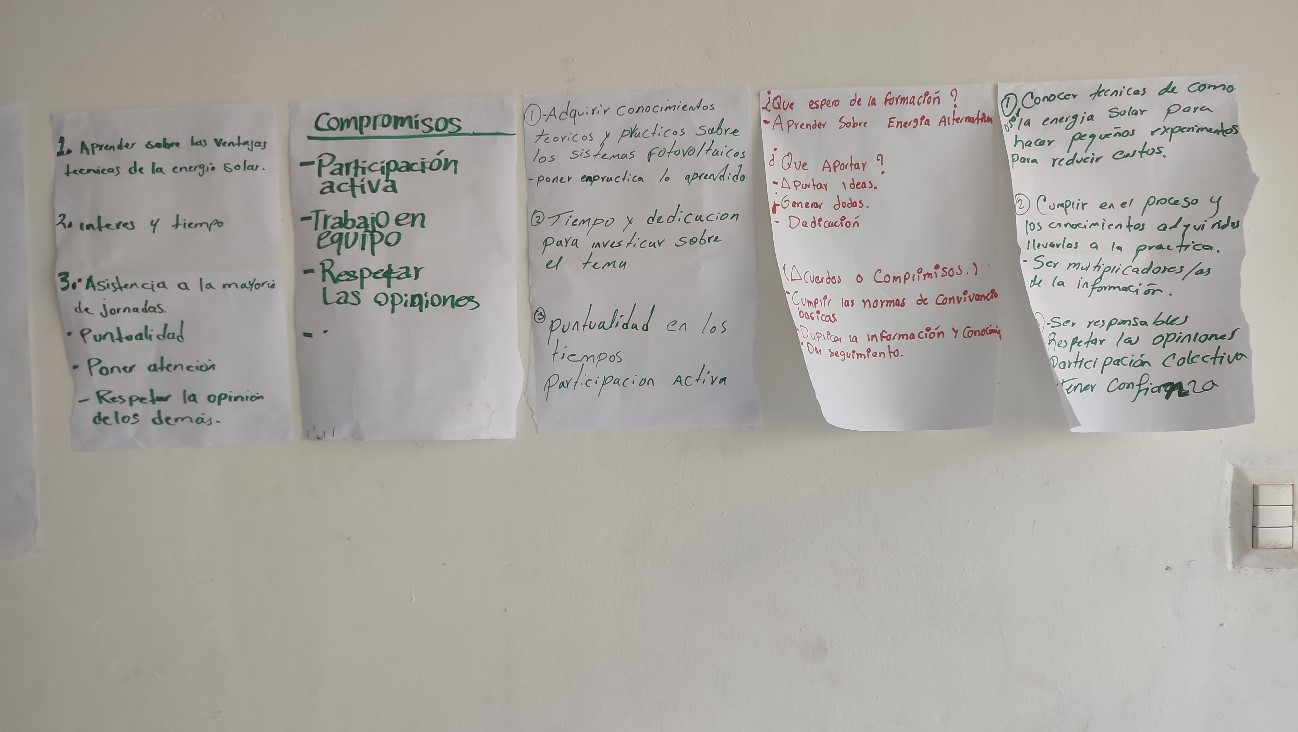 1. Aprender sobre las Ventajas
tecnicas de la energia solar.
2. interes y tiempo
3. Asistencia a la mayoria
de jornadas.
• Puntualidad
• Poner atención
- Respetar la opinión
de los demás.
Compromisos
- Participación
activa
- Trabajo en
equipo
- Respetar
Las opiniones
- .
① - Adquirir conocimientos
teoricos y practicos sobre
los sistemas fotovoltaicos
- poner en practica lo aprendido
② Tiempo y dedicacion
para investigar sobre
el tema
③ puntualidad en los
tiempos
participacion Activa
¿Que espero de la formación?
- Aprender Sobre Energia Alternativa
¿Que Aportar?
- Aportar ideas.
- Generar dudas.
- Dedicación
(Acuerdos o Comprimisos.)
Cumplir las normas de Convivencia
basicas
la información y
Dar seguimiento.
① Conocer tecnicas de como
la energia Solar para
hacer pequeños experimentos
para reducir costos.
② Cumplir en el proceso y
los conocimientos adquiridos
llevarlos a la practica.
- Ser multiplicadores/as
de la información.
- Ser responsables
Respetar las opiniones
Participación Colectiva
Tener Confianza